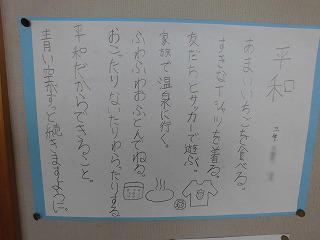 平和
二年
あまいいちごを食べる。
すきなTシャツを着る。
友だちとサッカーで遊ぶ。
家族で温泉に行く。
ふわふわおふとんでねる。
おこったりないたりわらったりする
平和だからできること。
青い空がずっと続きますように。